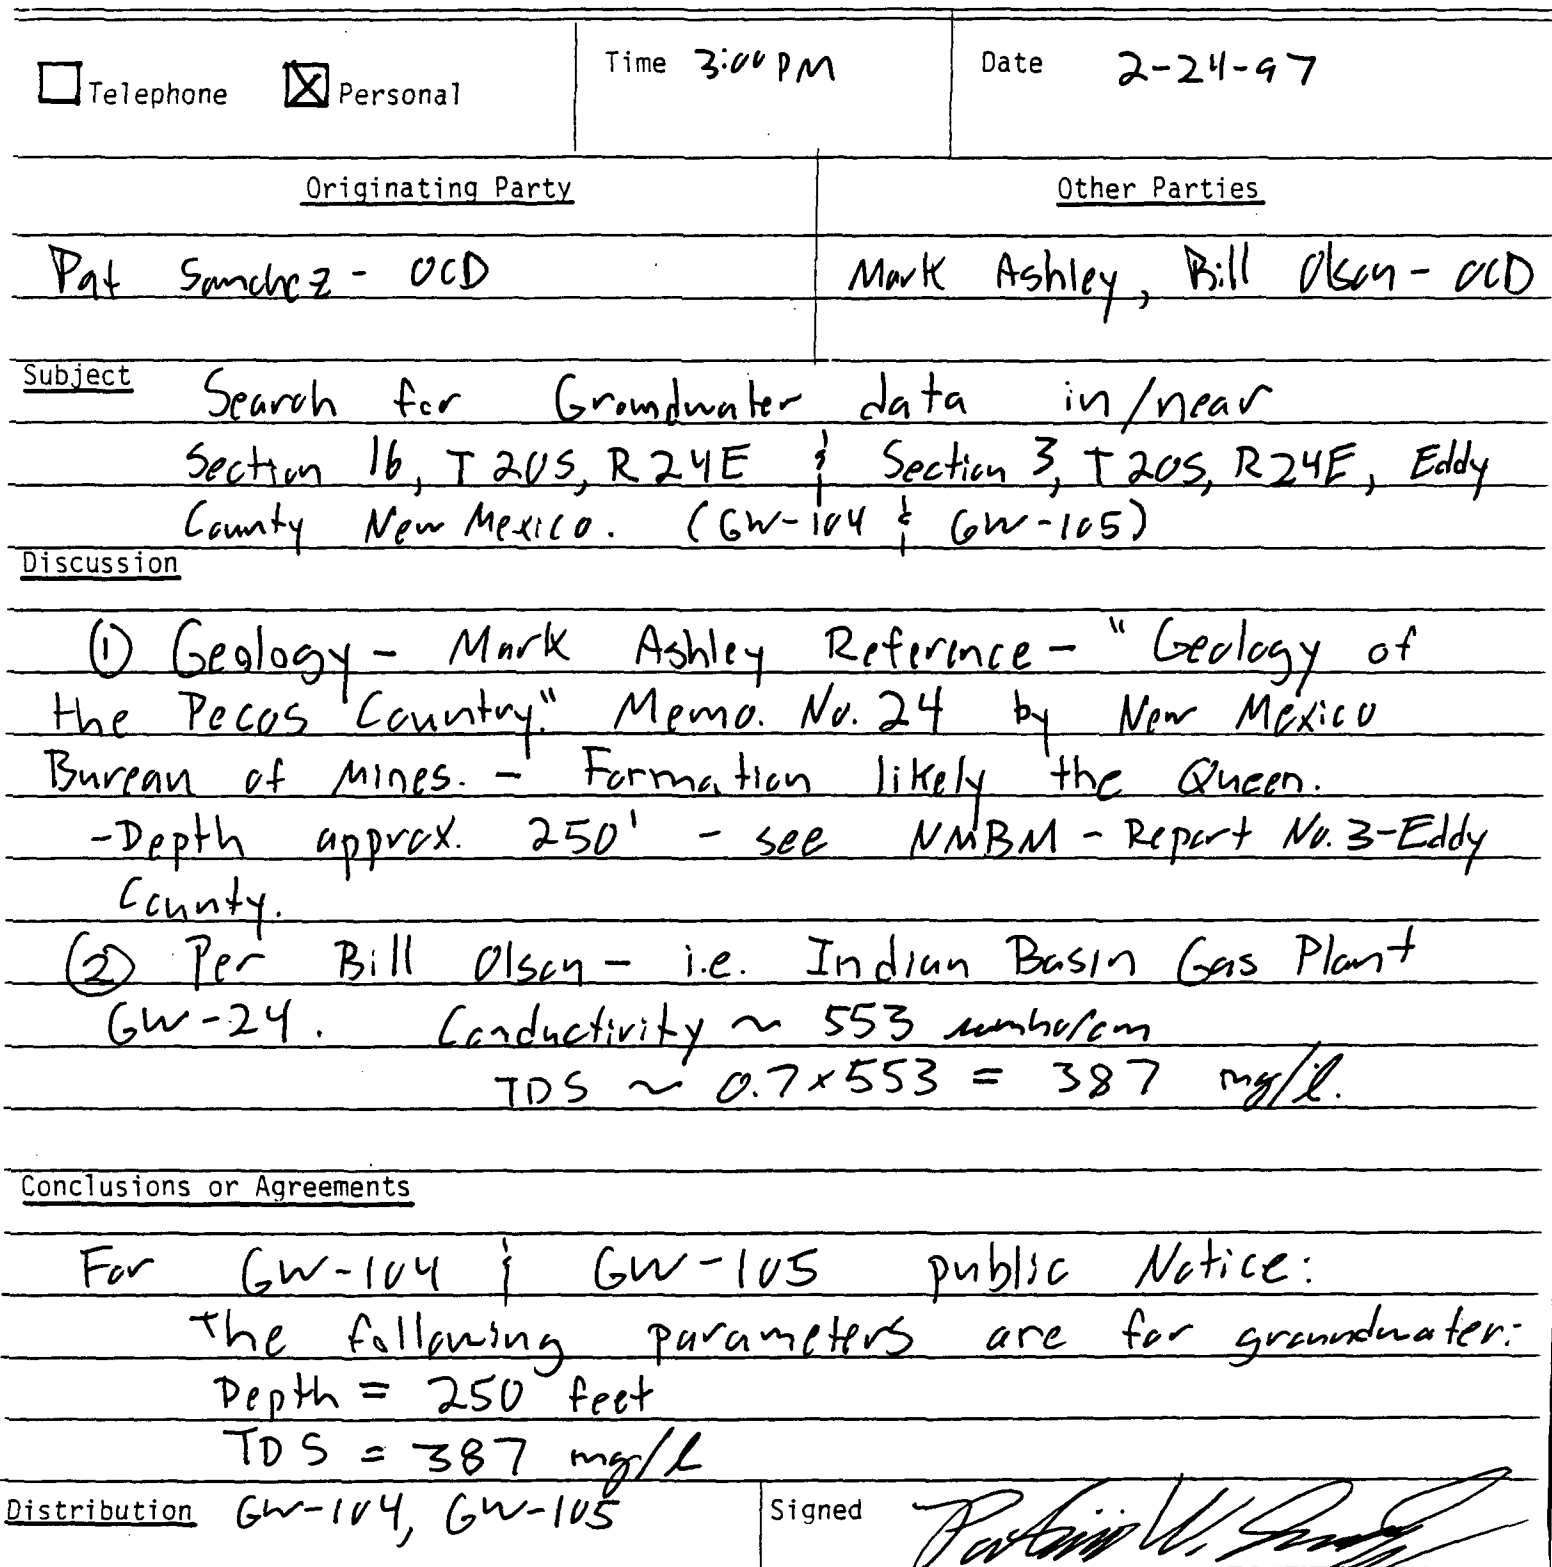 Telephone Personal Time 3:00 PM Date 2-24-97
Originating Party Other Parties
Pat Sanchez - OCD Mark Ashley, Bill Olson - OCD
Subject Search for Groundwater data in/near
Section 16, T20S, R24E & Section 3, T20S, R24E, Eddy
County New Mexico. (GW-104 & GW-105)
Discussion
① Geology - Mark Ashley Reference - "Geology of
the Pecos Country." Memo. No. 24 by New Mexico
Bureau of Mines. - Formation likely the Queen.
-Depth approx. 250' - see NMBM - Report No. 3-Eddy
County.
② Per Bill Olson - i.e. Indian Basin Gas Plant
GW-24. Conductivity ~ 553 umho/cm
TDS ~ 0.7 x 553 = 387 mg/l.
Conclusions or Agreements
For GW-104 & GW-105 public Notice:
The following parameters are for groundwater:
Depth = 250 feet
TDS = 387 mg/l
Distribution GW-104, GW-105 Signed